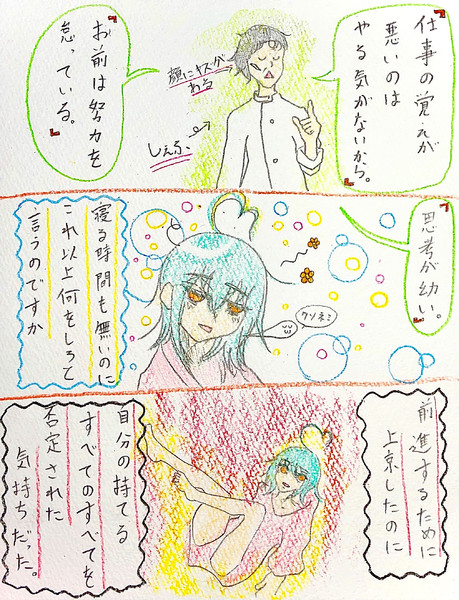 『仕事の覚えが
悪いのは
やる気がないから。』
顔にキズが
ある
しぇふ、
『お前は努力を
怠っている。』
『思考が幼い。』
クソネミ
寝る時間も無いのに
これ以上何をしろと
言うのですか
前進するために
上京したのに
自分の持てる
すべてのすべてを
否定された
気持ちだった。